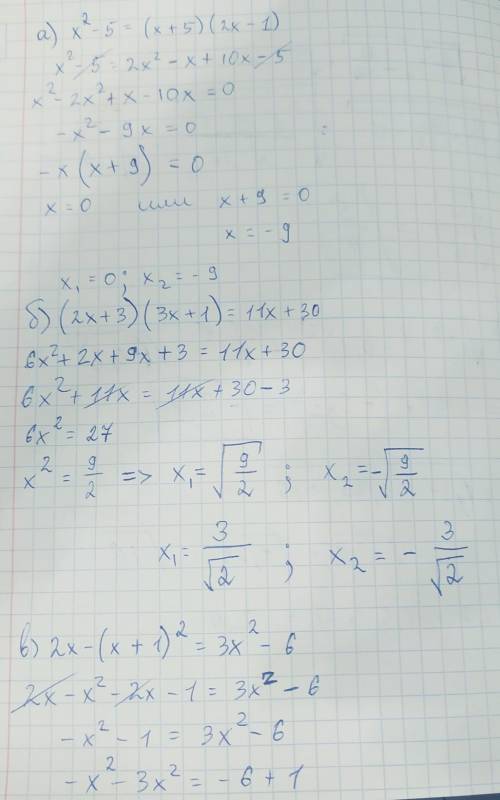 а) x² - 5 = (x + 5)(2x - 1)
x² - 5 = 2x² - x + 10x - 5
x² - 2x² + x - 10x = 0
-x² - 9x = 0
-x(x + 9) = 0
x = 0 или x + 9 = 0
x = -9
x₁ = 0; x₂ = -9
б) (2x + 3)(3x + 1) = 11x + 30
6x² + 2x + 9x + 3 = 11x + 30
6x² + 11x = 11x + 30 - 3
6x² = 27
x² = 9/2 => x₁ = √(9/2) ; x₂ = -√(9/2)
x₁ = 3/√2 ; x₂ = - 3/√2
в) 2x - (x + 1)² = 3x² - 6
2x - x² - 2x - 1 = 3x² - 6
-x² - 1 = 3x² - 6
-x² - 3x² = -6 + 1